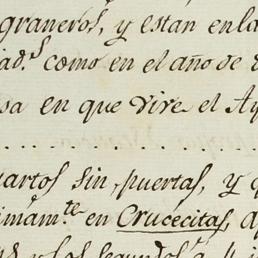 graneros, y estan en la
ad.s como en el año de
sa en que vive el Ay
. . . . . . . . . . . . . .
uartos sin, puertas, y q
imám.te en Crucecitas, a
y los segundos á 4